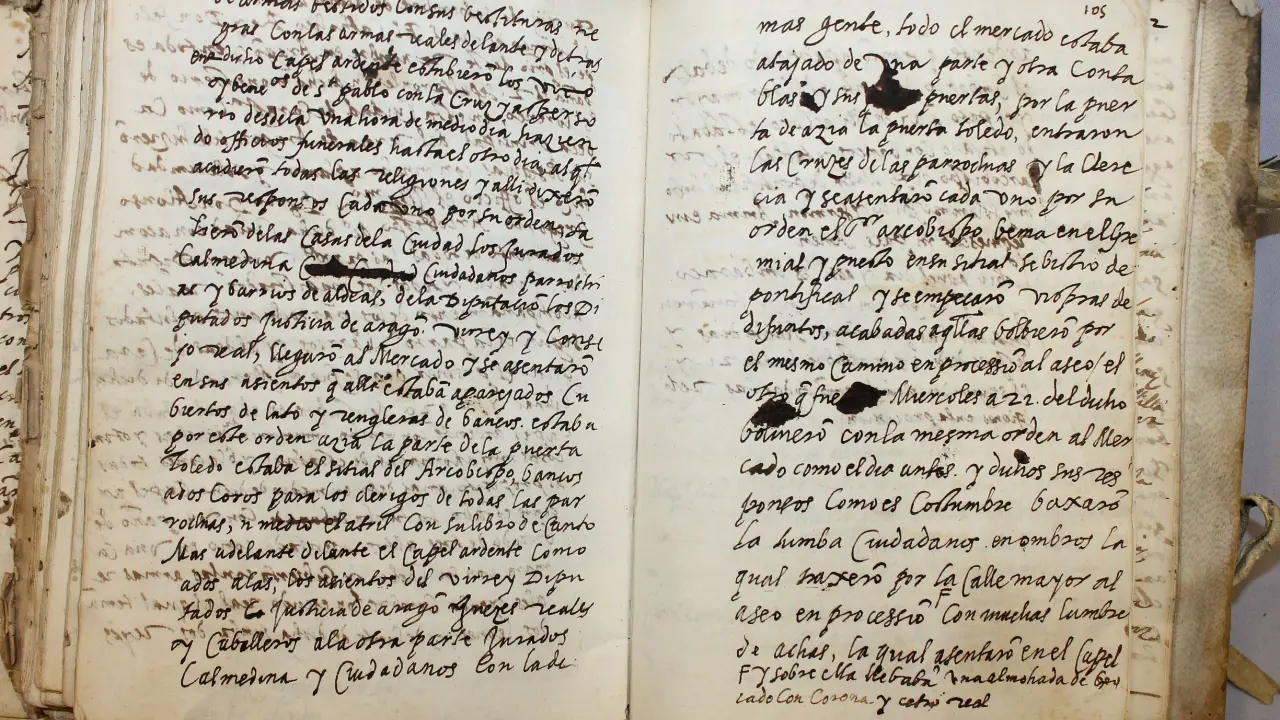 de armas vestidos con sus vestituras ne
gras con las armas reales delante y detras
en dicho Capel ardente estubierõ los
y beneos de st pablo con la Cruz y asperso
rio desde la una hora de mediodia hazien
do officios funerales hasta el otro dia, al ql
acudierõ todas las religiones y alli dixerõ
sus responsos cada uno por su orden,
tierõ de las Casas dela Ciudad los Jurados
Calmedina Ciudadanos parrochi
as y barrios de aldeas, de la Diputaciõ los Di
putados Justicia de aragõ. virrey y Conse
jo real, llegarõ al Mercado y se asentarõ
en sus asientos q̃ alli estabã aparejados Cu
biertos de luto y rengleras de bancos. estaba
por este orden azia la parte de la puerta
Toledo estaba el sitial del Arcobispo, bancos
a dos Coros para los clerigos de todas las par
rochias, n medio el atril Con su libro de Canto
Mas adelante delante el Capel ardente como
a dos alas, los asientos del Virrey Dipu
tados Justicia de aragõ Juezes reales
y Caballeros a la otra parte Jurados
Calmedina y Ciudadanos Con la de
105
2
mas gente, todo el mercado estaba
atajado de una parte y otra Con ta
blas y sus puertas, por la puer
ta de azia la puerta toledo, entraron
las Cruzes de las parrochias y la Clere
cia y se asentarõ cada uno por su
orden el Sr arcobispo benia en el Gre
mial y puesto en su sitial se bistio de
pontifical y se empecarõ vispras de
difuntos, acabadas aqllas bolbierõ por
el mesmo Camino en processiõ al aseo / el
otro q̃ fue Miercoles a 22. del dicho
bolvierõ con la mesma orden al Mer
cado como el dia antes. y dichos sus res
ponsos Como es Costumbre baxarõ
la tumba Ciudadanos en ombros la
qual traxerõ por la Calle mayor al
aseo en processiõ F Con muchas lumbre
de achas, la qual asentarõ en el Capel
F y sobre ella llebabã una almohada de bro
cado Con Corona y cetro real